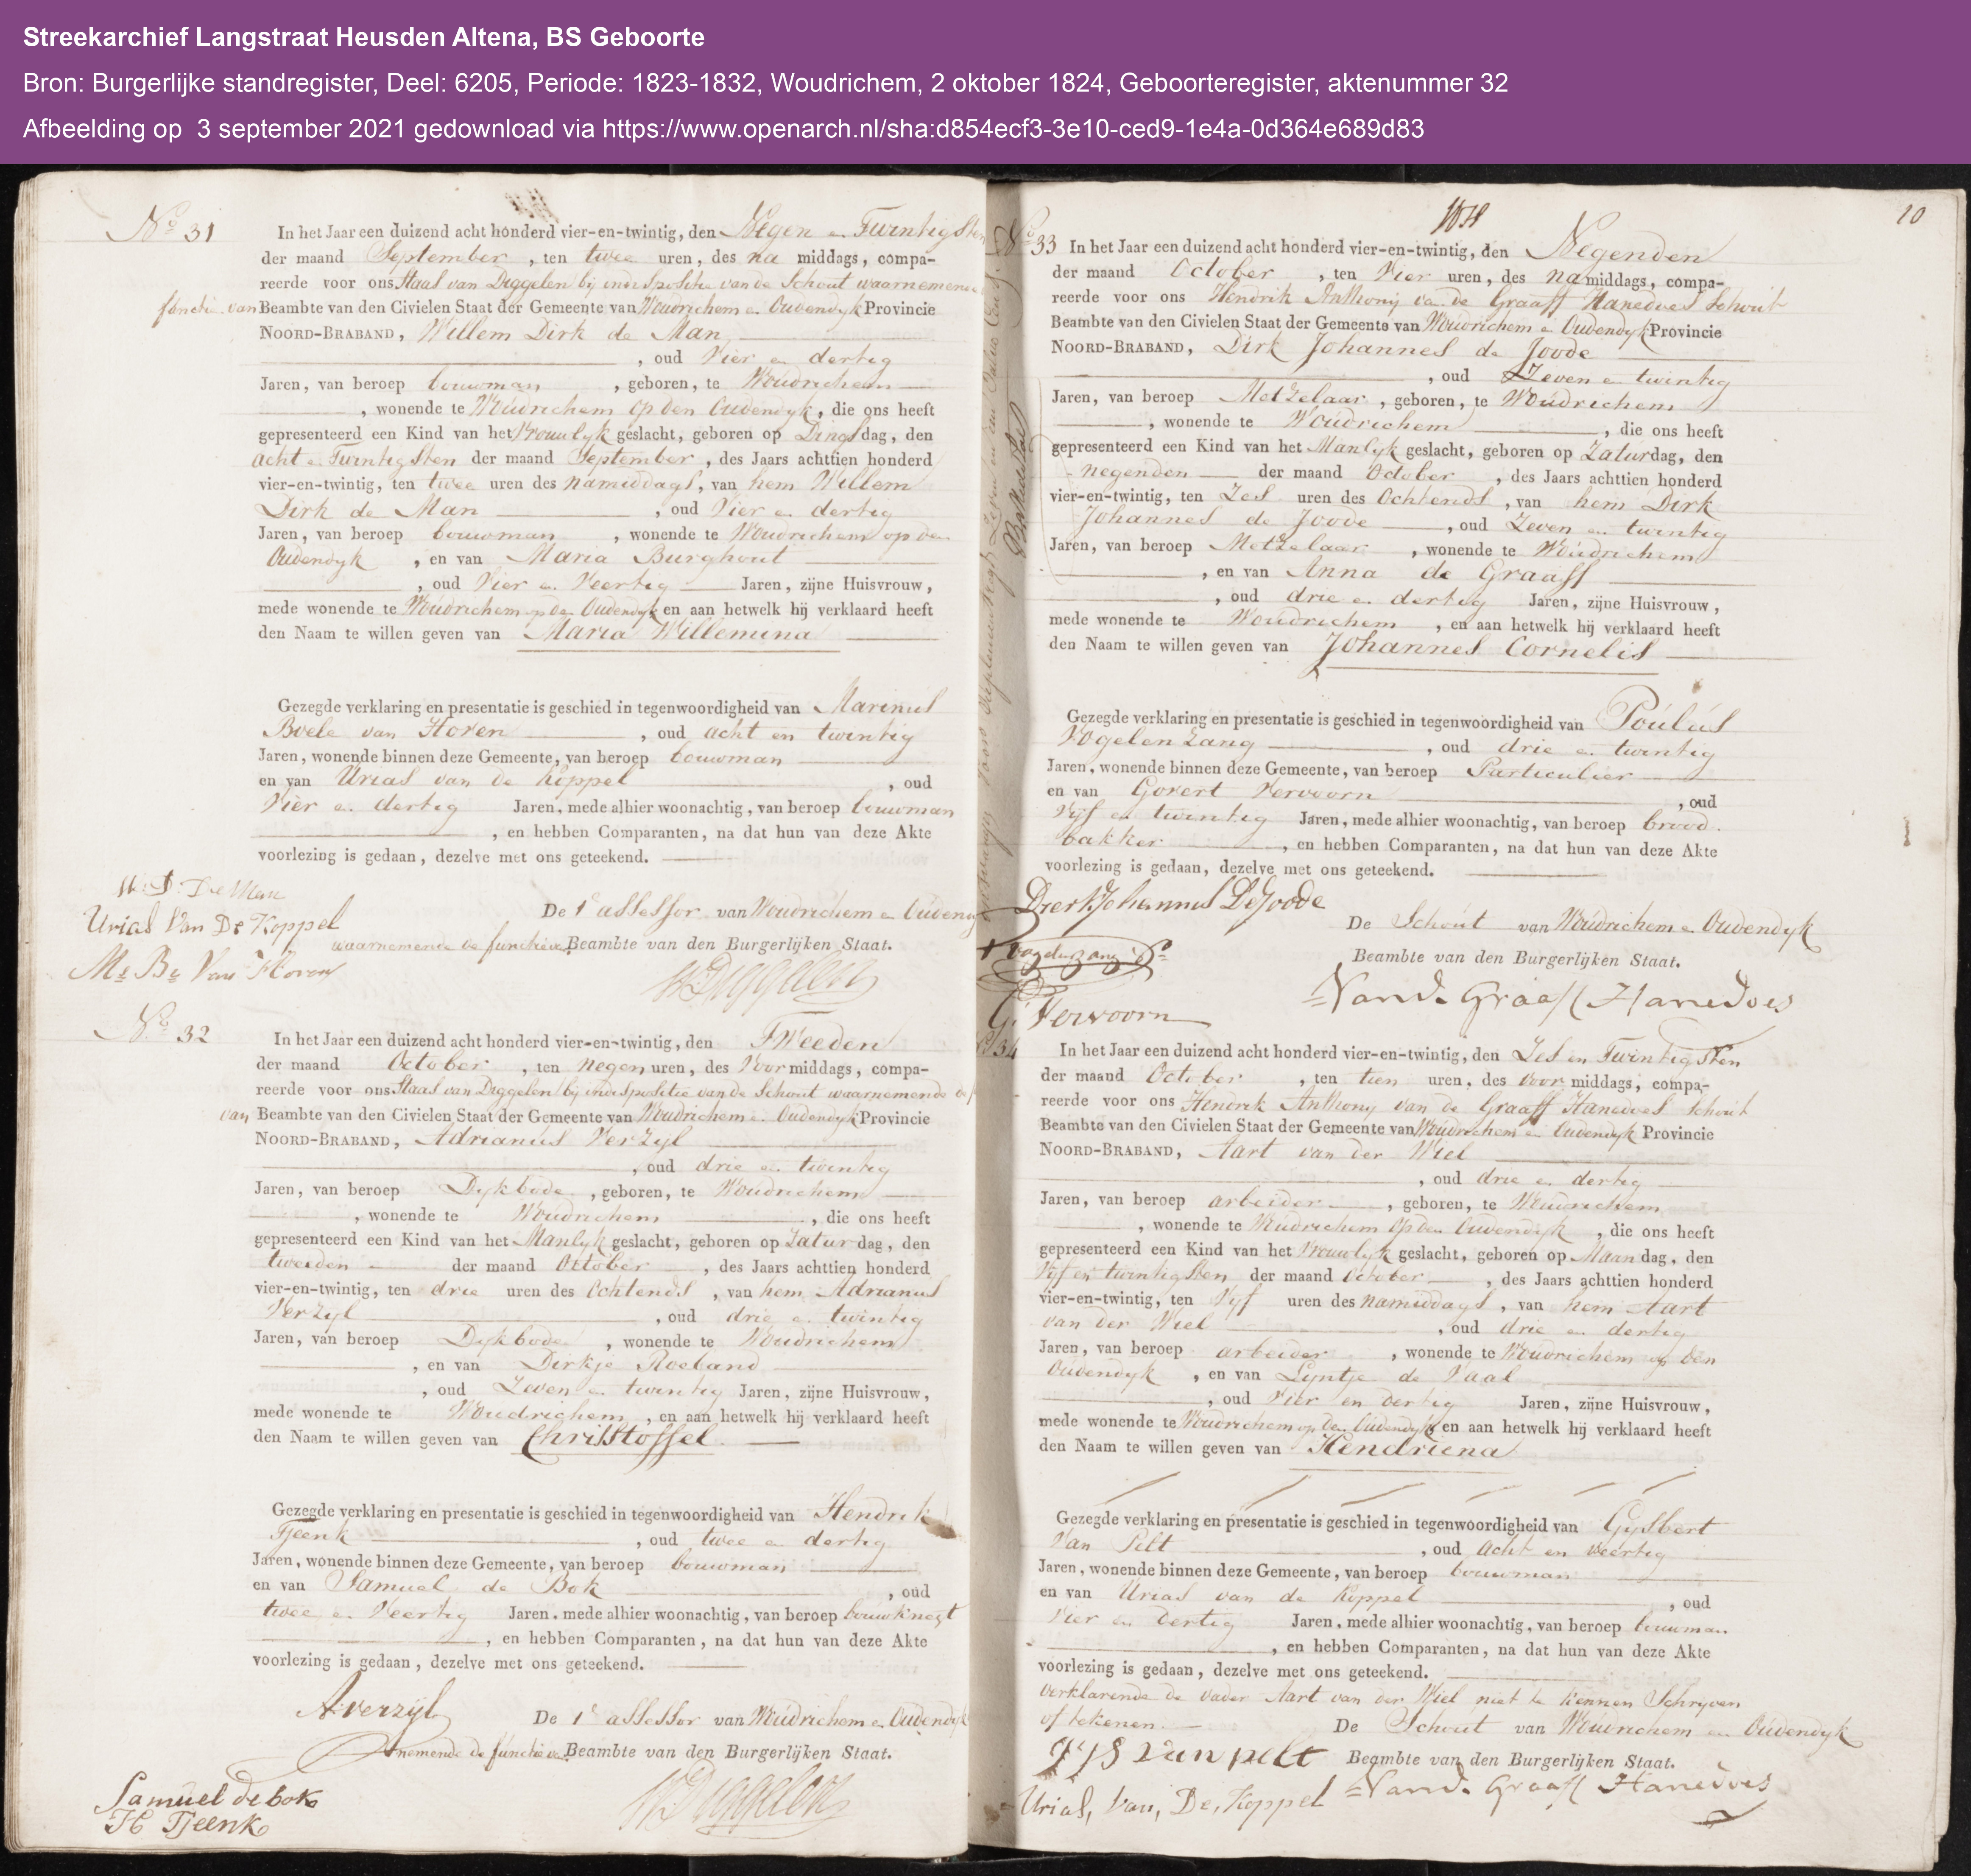 Streekarchief Langstraat Heusden Altena, BS Geboorte
Bron: Burgerlijke standregister, Deel: 6205, Periode: 1823-1832, Woudrichem, 2 oktober 1824, Geboorteregister, aktenummer 32
Afbeelding op 3 september 2021 gedownload via https://www.openarch.nl/sha:d854ecf3-3e10-ced9-1e4a-0d364e689d83
No 31
In het Jaar een duizend acht honderd vier-en-twintig, den Negen en Twintigsten
der maand September, ten twee uren, des na middags, compa-
reerde voor ons Staas van Diggelen bij indispositie van de Schout waarnemende
functie van Beambte van den Civielen Staat der Gemeente van Woudrichem en Oudendyk Provincie
NOORD-BRABAND, Willem Dirk de Man
, oud Vier en dertig
Jaren, van beroep bouwman, geboren, te Woudrichem
, wonende te Woudrichem op den Oudendyk, die ons heeft
gepresenteerd een Kind van het Vrouwlyk geslacht, geboren op Dingsdag, den
acht en Twintigsten der maand September, des Jaars achttien honderd
vier-en-twintig, ten twee uren des namiddags, van hem Willem
Dirk de Man, oud Vier en dertig
Jaren, van beroep bouwman, wonende te Woudrichem op den
Oudendyk, en van Maria Burghout
, oud Vier en Veertig Jaren, zijne Huisvrouw,
mede wonende te Woudrichem op den Oudendyk en aan hetwelk hij verklaard heeft
den Naam te willen geven van Maria Willemina
Gezegde verklaring en presentatie is geschied in tegenwoordigheid van Marinus
Boele van Horen, oud acht en twintig
Jaren, wonende binnen deze Gemeente, van beroep bouwman
en van Urias van de Koppel, oud
Vier en dertig Jaren, mede alhier woonachtig, van beroep bouwman
, en hebben Comparanten, na dat hun van deze Akte
voorlezing is gedaan, dezelve met ons geteekend.
W: D: De Man
Urias Van De Koppel
M: B: Van Horen
De 1e assessor van Woudrichem en Oudendyk
waarnemende de functie van Beambte van den Burgerlijken Staat.
No 32
In het Jaar een duizend acht honderd vier-en-twintig, den Tweeden
der maand October, ten negen uren, des Voor middags, compa-
reerde voor ons Staas van Diggelen bij indispositie van de Schout waarnemende de f
van Beambte van den Civielen Staat der Gemeente van Woudrichem en Oudendyk Provincie
NOORD-BRABAND, Adrianus VerZyl
, oud drie en twintig
Jaren, van beroep Dykbode, geboren, te Woudrichem
, wonende te Woudrichem, die ons heeft
gepresenteerd een Kind van het Manlyk geslacht, geboren op Zaturdag, den
tweeden der maand October, des Jaars achttien honderd
vier-en-twintig, ten drie uren des Ochtends, van hem Adrianus
VerZyl, oud drie en twintig
Jaren, van beroep Dykbode, wonende te Woudrichem
, en van Dirkje Roeland
, oud Zeven en twintig Jaren, zijne Huisvrouw,
mede wonende te Woudrichem, en aan hetwelk hij verklaard heeft
den Naam te willen geven van Christtoffel
Gezegde verklaring en presentatie is geschied in tegenwoordigheid van Hendrik
Tjeenk, oud twee en dertig
Jaren, wonende binnen deze Gemeente, van beroep bouwman
en van Samuel de Bok, oud
twee en Veertig Jaren, mede alhier woonachtig, van beroep bouwknegt
, en hebben Comparanten, na dat hun van deze Akte
voorlezing is gedaan, dezelve met ons geteekend.
A verzijl
De 1e assessor van Woudrichem en Oudendyk
nemende de functie van Beambte van den Burgerlijken Staat.
Samuel de bok
H Tjeenk
10
No 33
In het Jaar een duizend acht honderd vier-en-twintig, den Negenden
der maand October, ten Vier uren, des na middags, compa-
reerde voor ons Hendrik Anthony van de Graaff Hanedoes Schout
Beambte van den Civielen Staat der Gemeente van Woudrichem en Oudendyk Provincie
NOORD-BRABAND, Dirk Johannes de Joode
, oud Zeven en twintig
Jaren, van beroep Metzelaar, geboren, te Woudrichem
, wonende te Woudrichem, die ons heeft
gepresenteerd een Kind van het Manlyk geslacht, geboren op Zaturdag, den
negenden der maand October, des Jaars achttien honderd
vier-en-twintig, ten Zes uren des Ochtends, van hem Dirk
Johannes de Joode, oud Zeven en twintig
Jaren, van beroep Metzelaar, wonende te Woudrichem
, en van Anna de Graaff
, oud drie en dertig Jaren, zijne Huisvrouw,
mede wonende te Woudrichem, en aan hetwelk hij verklaard heeft
den Naam te willen geven van Johannes Cornelis
Gezegde verklaring en presentatie is geschied in tegenwoordigheid van Poulus
Vogelenzang, oud drie en twintig
Jaren, wonende binnen deze Gemeente, van beroep Particulier
en van Govert Vervoorn, oud
Vyf en twintig Jaren, mede alhier woonachtig, van beroep brood
bakker, en hebben Comparanten, na dat hun van deze Akte
voorlezing is gedaan, dezelve met ons geteekend.
Dierk Johannus De Joode
G. Vervoorn
De Schout van Woudrichem en Oudendyk
Beambte van den Burgerlijken Staat.
Vand. Graaff Hanedoes
No 34
In het Jaar een duizend acht honderd vier-en-twintig, den Zes en Twintigsten
der maand October, ten tien uren, des voor middags, compa-
reerde voor ons Hendrik Anthony van de Graaff Hanedoes Schout
Beambte van den Civielen Staat der Gemeente van Woudrichem en Oudendyk Provincie
NOORD-BRABAND, Aart van der Wiel
, oud drie en dertig
Jaren, van beroep arbeider, geboren, te Woudrichem
, wonende te Woudrichem op den Oudendyk, die ons heeft
gepresenteerd een Kind van het Vrouwlyk geslacht, geboren op Maandag, den
Vyf en twintigsten der maand October, des Jaars achttien honderd
vier-en-twintig, ten Vyf uren des namiddags, van hem Aart
van der Wiel, oud drie en dertig
Jaren, van beroep arbeider, wonende te Woudrichem op den
Oudendyk, en van Lyntje de Vaal
, oud Vier en dertig Jaren, zijne Huisvrouw,
mede wonende te Woudrichem op den Oudendyk en aan hetwelk hij verklaard heeft
den Naam te willen geven van Hendriena
Gezegde verklaring en presentatie is geschied in tegenwoordigheid van Gysbert
Van Pelt, oud acht en veertig
Jaren, wonende binnen deze Gemeente, van beroep bouwman
en van Urias van de Koppel, oud
Vier en dertig Jaren, mede alhier woonachtig, van beroep bouwman
, en hebben Comparanten, na dat hun van deze Akte
voorlezing is gedaan, dezelve met ons geteekend.
verklarende de vader Aart van der Wiel niet te kennen Schryven
of tekenen.
De Schout van Woudrichem en Oudendyk
Beambte van den Burgerlijken Staat.
gijs van pelt
Urias, Van, De, Koppel
Vand. Graaff Hanedoes